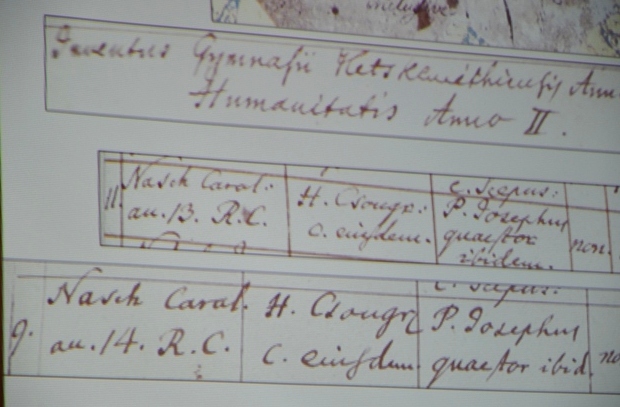 inclusive.
Juventus Gymnasii Ketskeméthiensis Ann
Humanitatis Anno II.
11. Nasch Carol:
an. 13. R.C.
H. Csongr:
C. eiusdem.
C. Scepus:
P. Josephus
quaestor
ibidem.
non.
9. Nasch Carol.
an. 14. R.C.
H. Csongr
C. eiusdem.
C. Scepus:
P. Josephus
quaestor ibid.
no